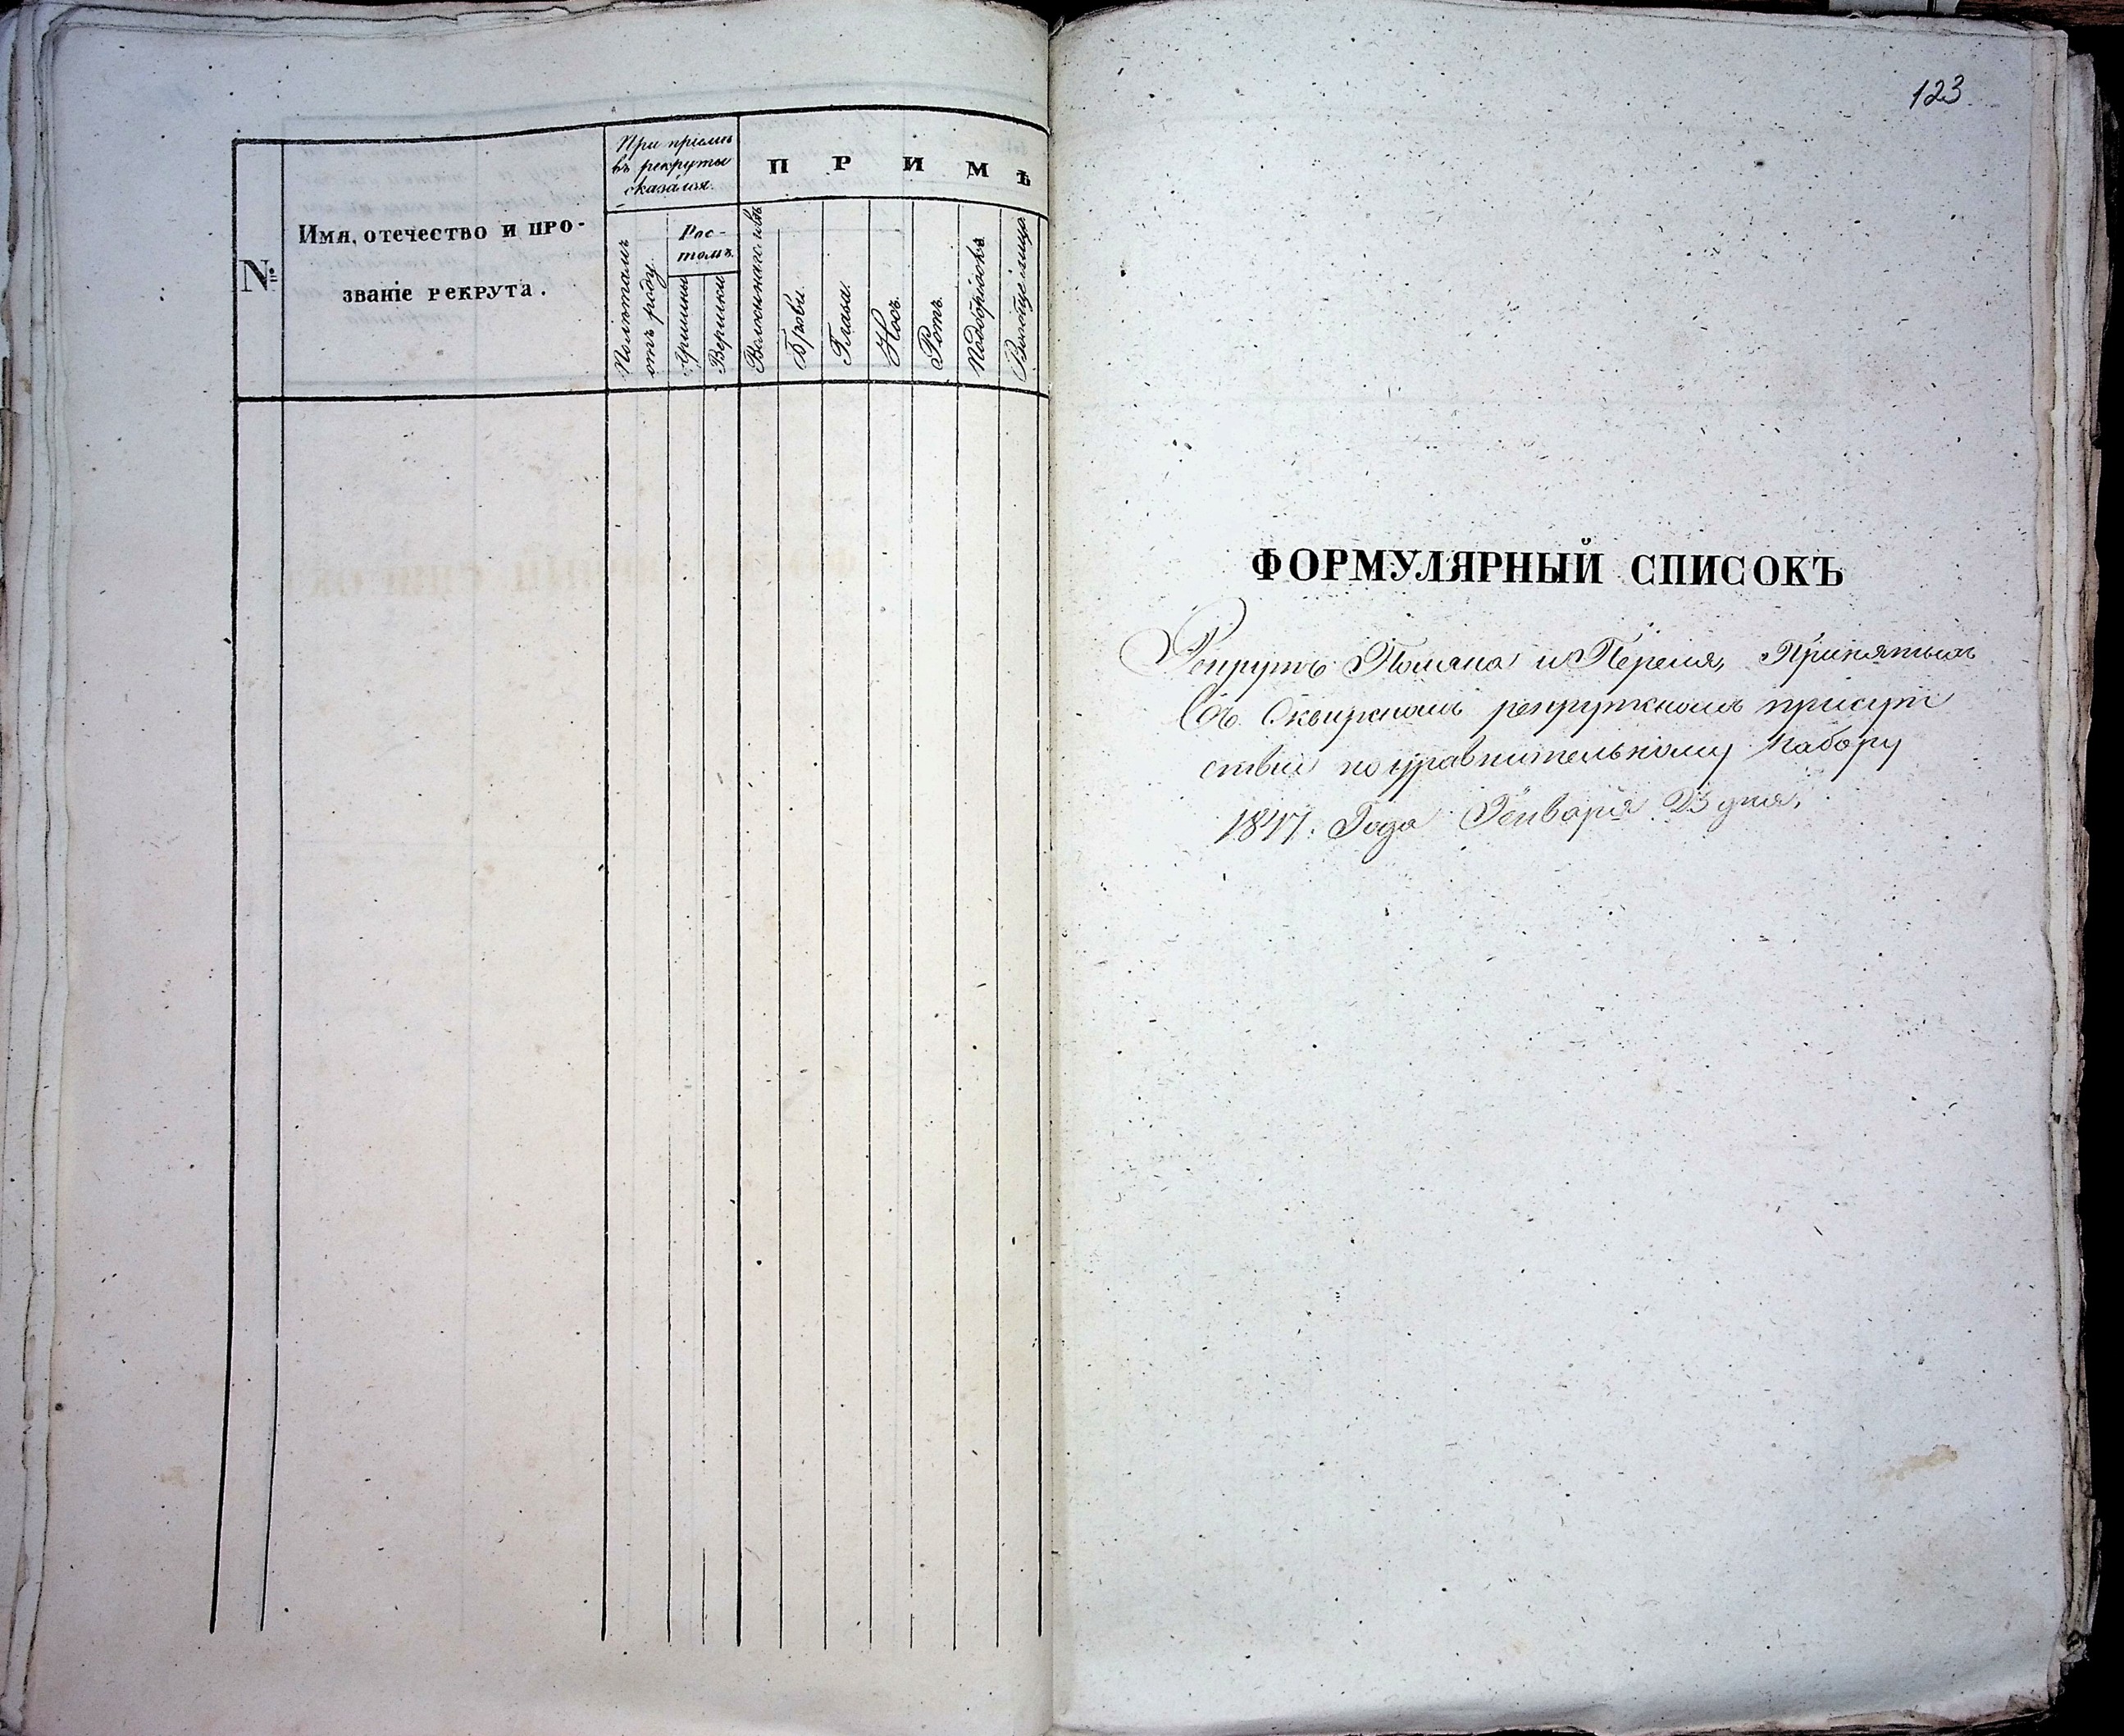 №
Имя, отечество и про-
званіе рекрута.
При пріемѣ
въ рекруты
сказался.
Полѣтамъ
отъ роду.
Рос-
томъ.
Аршины
Вершки
П Р И М Ѣ
Брови.
Глаза.
Носъ.
Ротъ.
Подбородокъ
Вообще лицо
123
ФОРМУЛЯРНЫЙ СПИСОКЪ
Рекрутъ Принятыхъ
Въ Сквирскомъ рекрутскомъ присут
ствіи по уравнительному набору
1847. Года Генваря 23 дня,